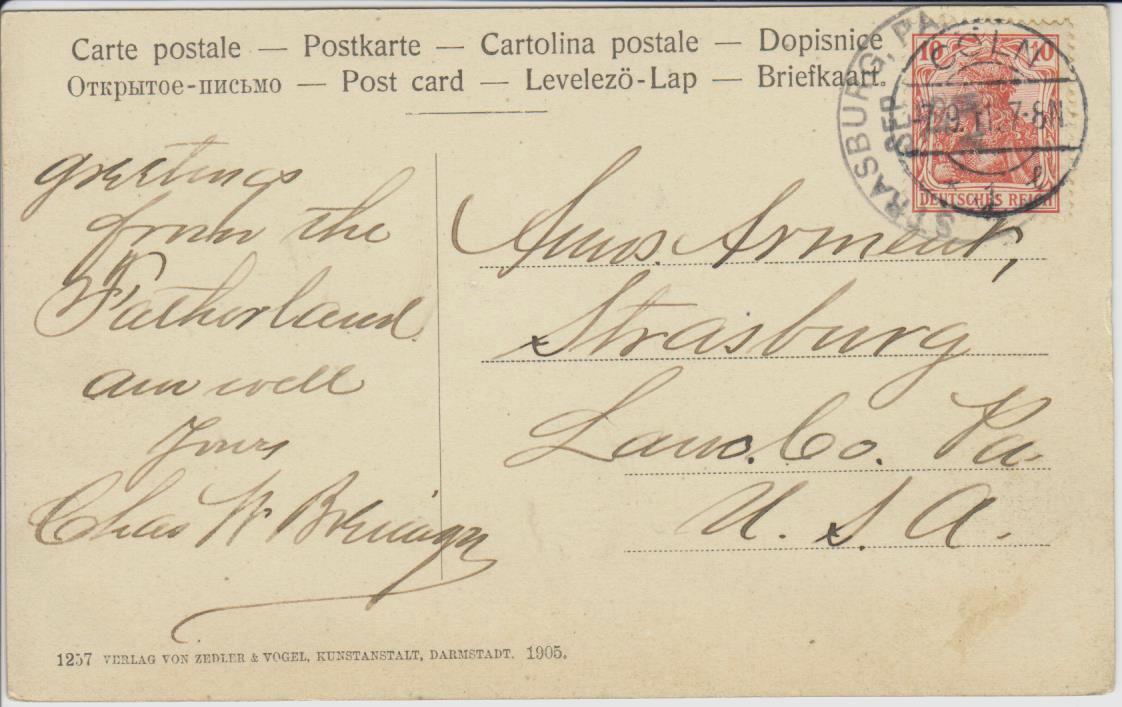 Carte postale — Postkarte — Cartolina postale — Dopisnice
Открытое-письмо — Post card — Levelezö-Lap — Briefkaart.
10 10
DEUTSCHES REICH
CÖLN
7.9.11. 7-8N
* 1 l
STRASBURG, PA
SEP
greetings
from the
Fatherland
am well
Yours
Chas W
Amos Arment,
Strasburg
Lanc. Co. Pa.
U. S. A.
1257 VERLAG VON ZEDLER & VOGEL, KUNSTANSTALT, DARMSTADT. 1905.